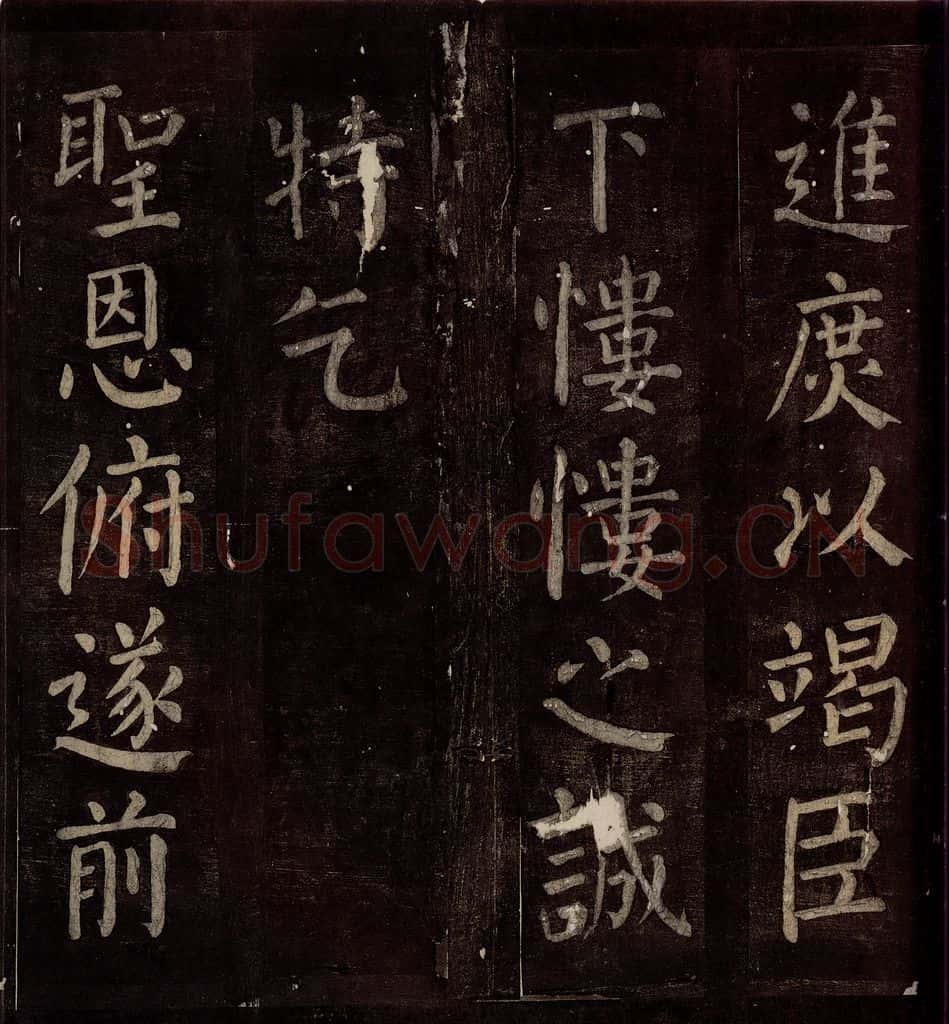 進庶以竭臣
下慺慺之誠
特乞
聖恩俯遂前
Shufawang.CN